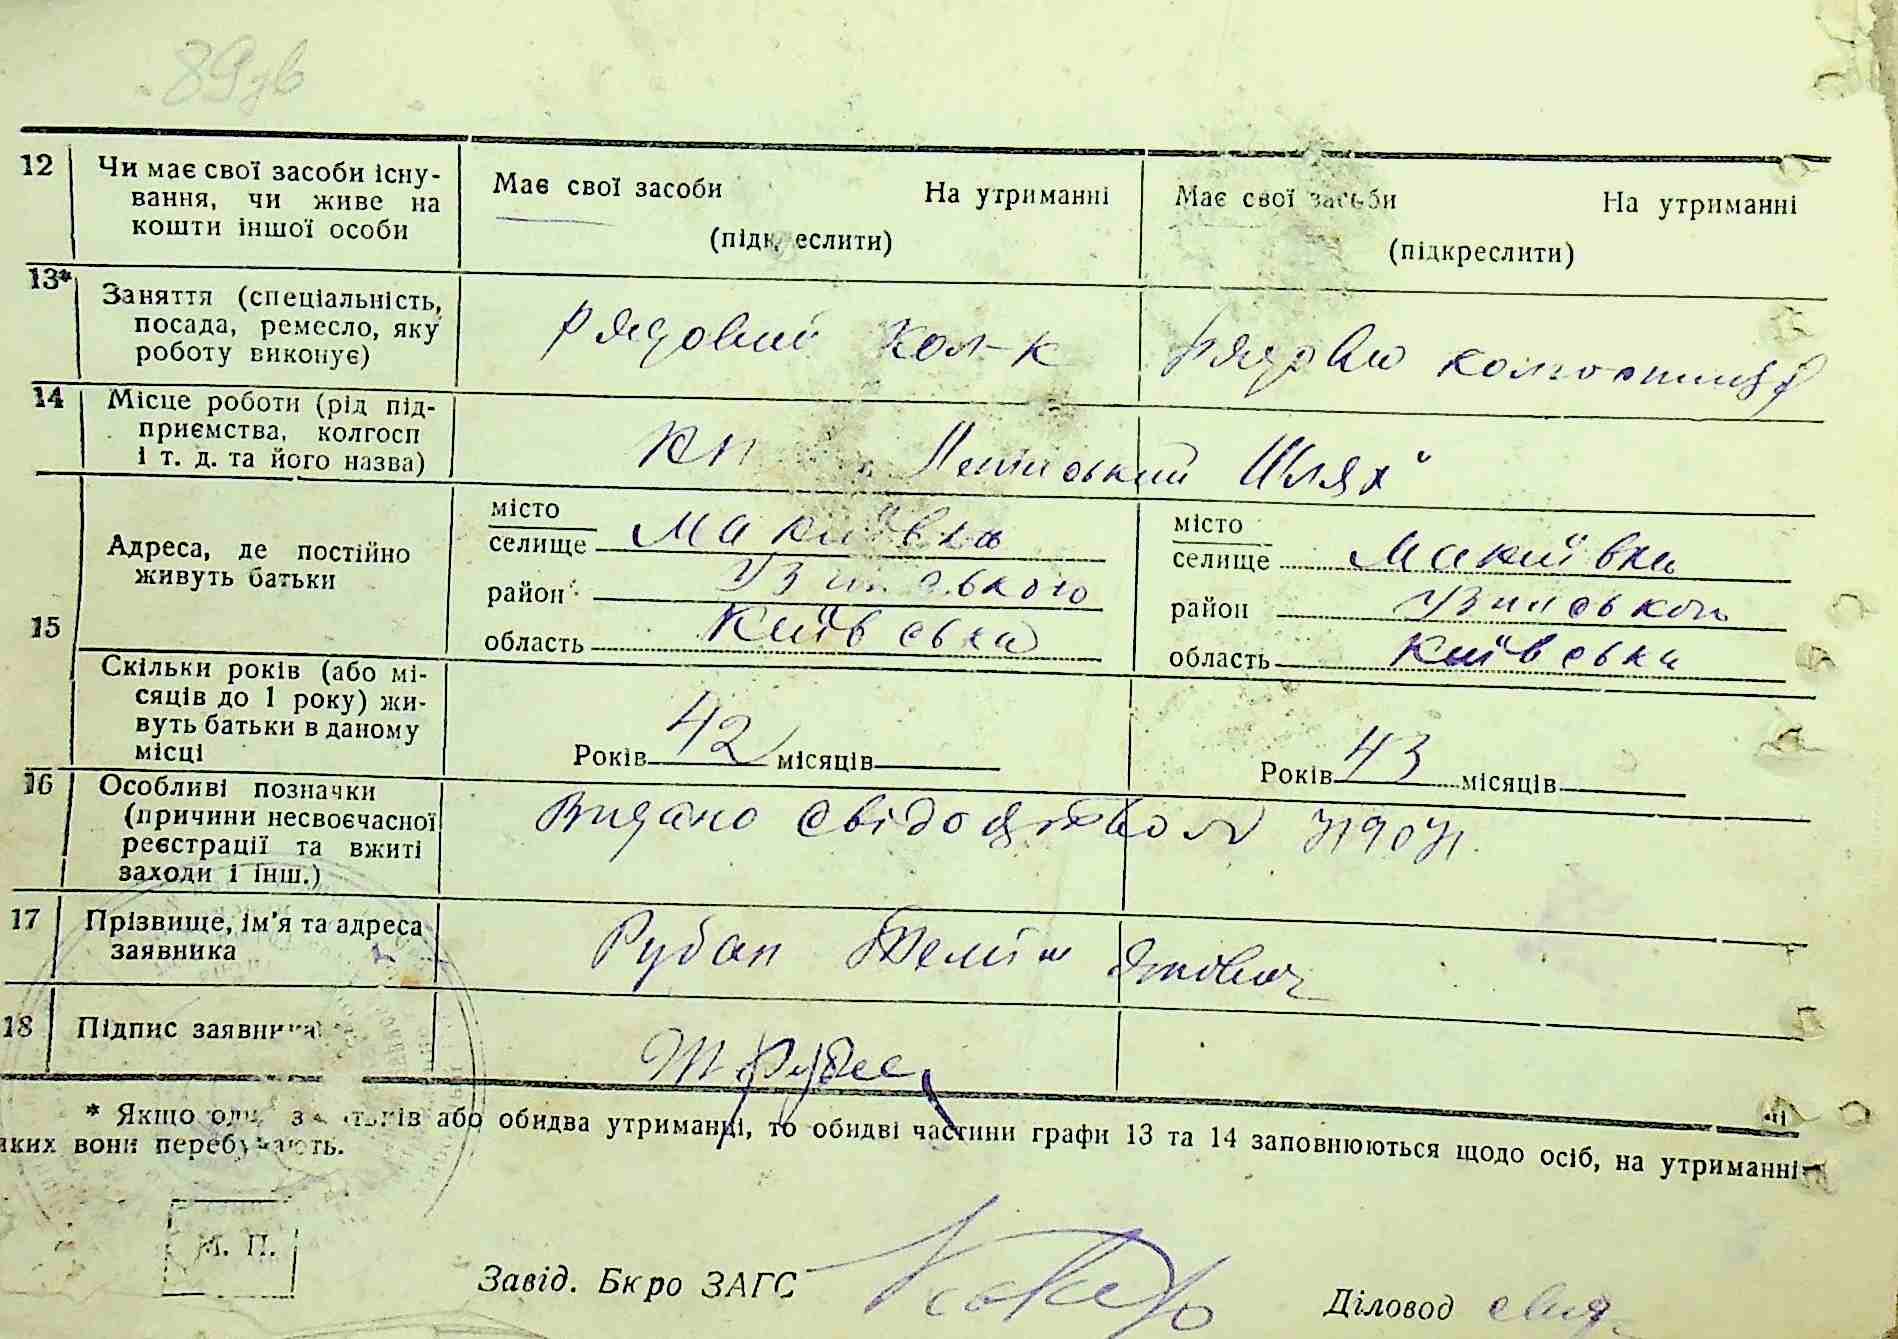 12 Чи має свої засоби існу-
вання, чи живе на
кошти іншої особи
Має свої засоби На утриманні
(підк еслити)
Має свої засоби На утриманні
(підкреслити)
13* Заняття (спеціальність,
посада, ремесло, яку
роботу виконує)
рядовий кол-к
14 Місце роботи (рід під-
приємства, колгосп
і т. д. та його назва)
Шлях"
15 Адреса, де постійно
живуть батьки
місто
селище Макиївка
район Узинського
область Київська
місто
селище Макиївка
район Узинського
область Київська
Скільки років (або мі-
сяців до 1 року) жи-
вуть батьки в даному
місці
Років 42 місяців
Років 43 місяців
16 Особливі позначки
(причини несвоєчасної
реєстрації та вжиті
заходи і інш.)
Видано свідоцтво
17 Прізвище, ім'я та адреса
заявника
Рубан
18 Підпис заявника
* Якщо од з батьків або обидва утриманці, то обидві частини графи 13 та 14 заповнюються щодо осіб, на утриманні
яких вони перебувають.
М. П.
Завід. Бюро ЗАГС
Діловод